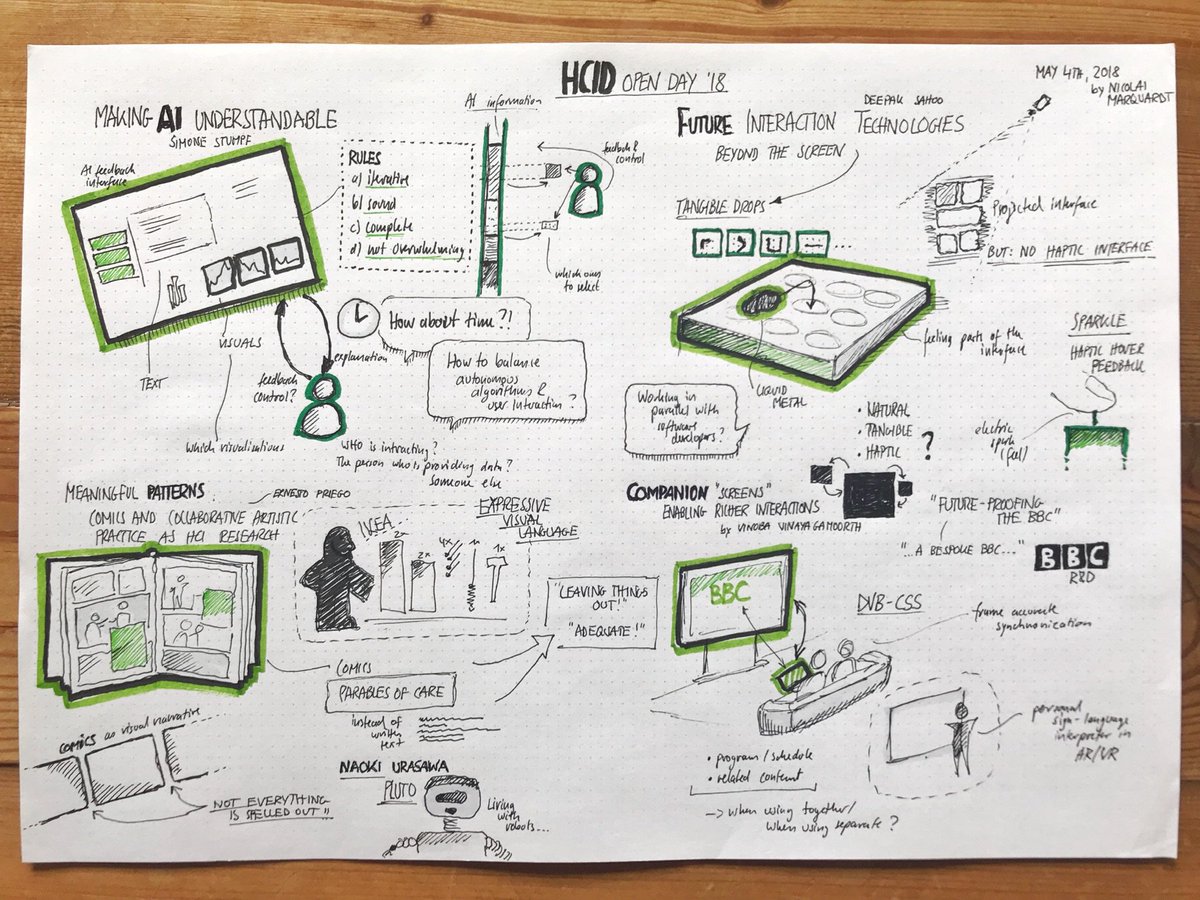 HCID OPEN DAY '18
MAY 4TH, 2018
by NICOLAI
MARQUARDT
MAKING AI UNDERSTANDABLE
SIMONE STUMPF
AI feedback
interface
RULES
a) iterative
b) sound
c) complete
d) not overwhelming
AI information
feedback &
control
which ones
to select
TEXT
VISUALS
which visualisations
explanation
feedback
control?
How about time?!
How to balance
autonomous
algorithms &
user interaction?
WHO is intracting?
The person who is providing data?
Someone else
FUTURE INTERACTION TECHNOLOGIES
BEYOND THE SCREEN
DEEPAK SAHOO
TANGIBLE DROPS
...
Projected interface
BUT: NO HAPTIC INTERFACE
feeling parts of the
interface
LIQUID
METAL
SPARKLE
HAPTIC HOVER
FEEDBACK
electric
spark
(feel)
Working in
parallel with
software
developers?
• NATURAL
• TANGIBLE
• HAPTIC
?
MEANINGFUL PATTERNS
ERNESTO PRIEGO
COMICS AND COLLABORATIVE ARTISTIC
PRACTICE AS HCI RESEARCH
EXPRESSIVE
VISUAL
LANGUAGE
IKEA
2x
2x
4x
1x
"LEAVING THINGS
OUT!"
"ADEQUATE!"
COMICS
PARABLES OF CARE
instead of
written
text
COMICS as visual narrative
"NOT EVERYTHING
IS SPELLED OUT"
NAOKI URASAWA
PLUTO
Living
with
robots...
COMPANION "SCREENS"
ENABLING RICHER INTERACTIONS
by VINOBA VINAYAGAMOORTH
"FUTURE-PROOFING
THE BBC"
"...A BESPOKE BBC..."
BBC
R&D
BBC
DVB-CSS
frame accurate
synchronization
personal
sign-language
interpreter in
AR/VR
• program/schedule
• related content
-> when using together/
when using separate?